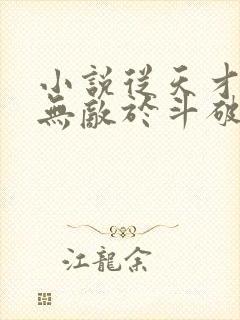 小說從天才
無敵於斗破
江龍余